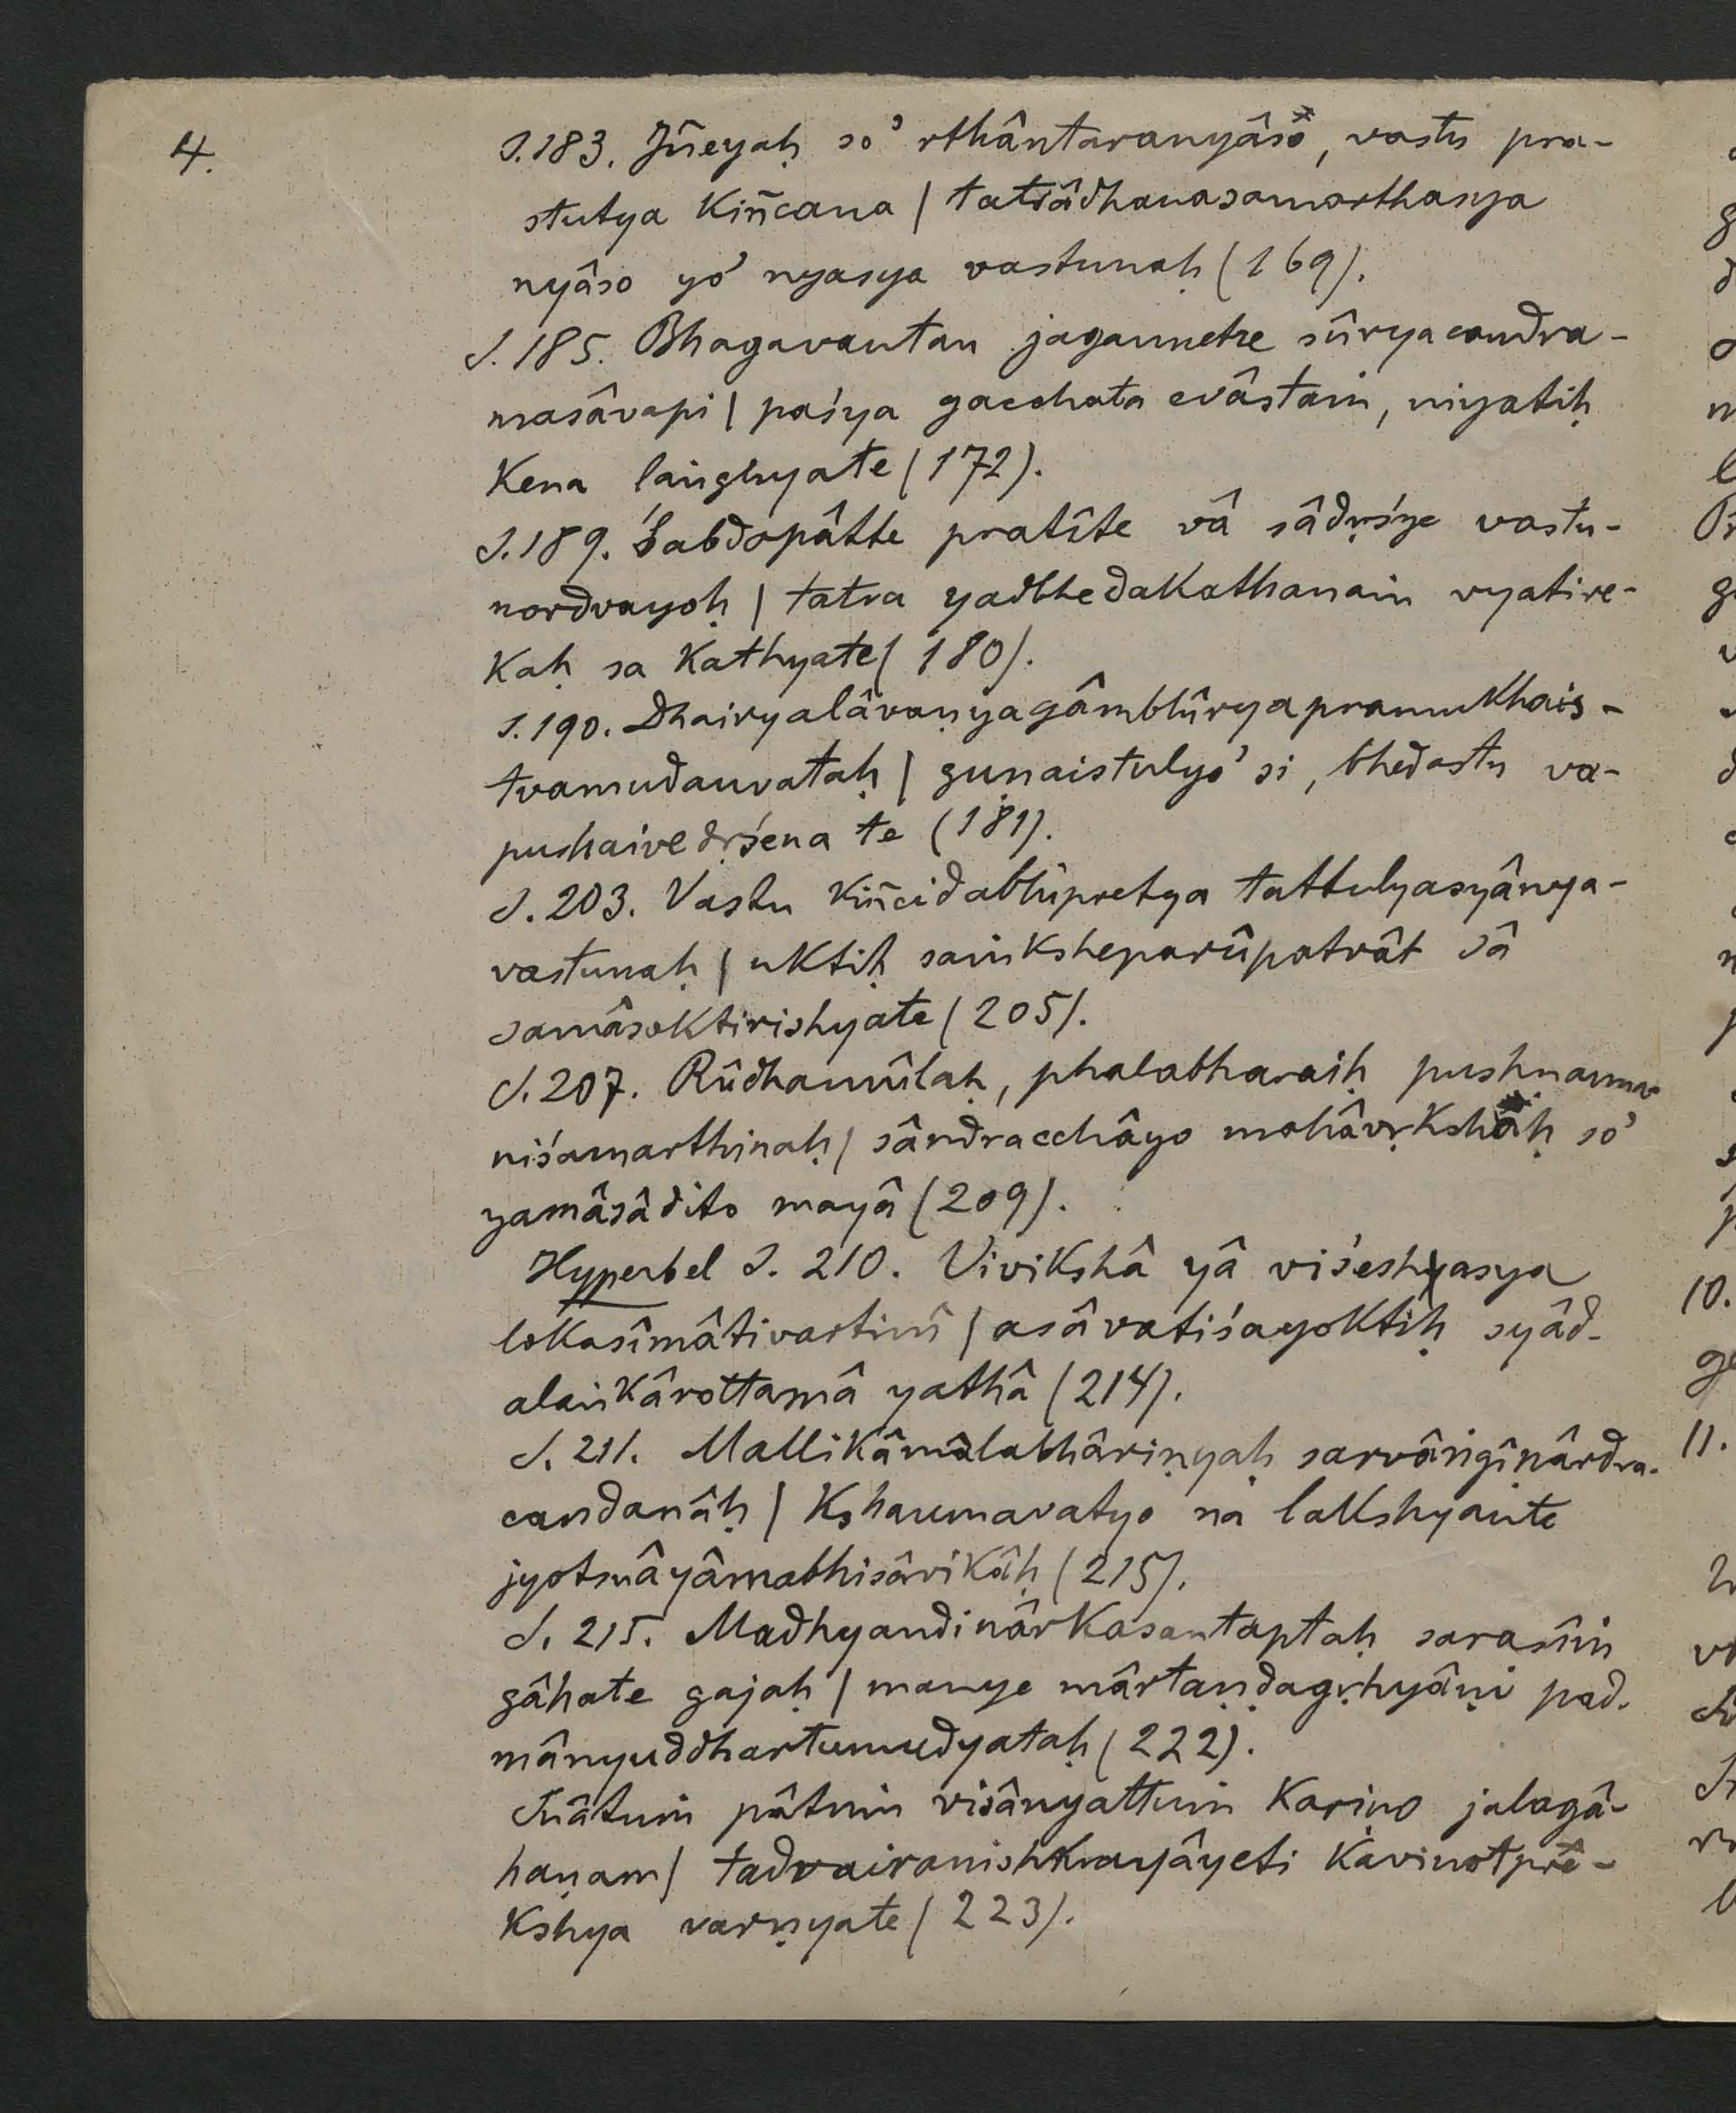 4.
S. 183. Jñeyaḥ so' rthântaranyâso, vastu pra-
stutya kiñcana | tatsâdhanasamarthasya
nyâso yo' nyasya vastunaḥ (169).
S. 185. Bhagavantau jagannetre sûryacandra-
masâvapi | paśya gacchata evâstaṁ, niyatiḥ
kena laṅghyate (172).
S. 189. Śabdopâtte pratîte vâ sâdṛśye vastu-
nordvayoḥ | tatra yadbhedakathanaṁ vyatire-
kaḥ sa kathyate (180).
S. 190. Dhairyalâvaṇyagâmbhîryapramukhais-
tvamudanvataḥ | guṇaistulyo' si, bhedastu va-
pushaivedṛśena te (181).
S. 203. Vastu kiñcidabhipretya tattulyasyânya-
vastunaḥ | uktiḥ saṁksheparûpatvât sâ
samâsoktirishyate (205).
S. 207. Rûdhamûlaḥ, phalabharaiḥ pushṇanna-
niśamarthinaḥ | sândracchâyo mahâvṛkshaḥ so'
yamâsâdito mayâ (209).
Hyperbel S. 210. Vivikshâ yâ viśeshasya
lokasîmâtivartinî | asâvatiśayoktiḥ syâd-
alaṁkârottamâ yathâ (214).
S. 211. Mallikâmâlabhâriṇyaḥ sarvâṅgîṇârdra-
candanâḥ | kshaumavatyo na lakshyante
jyotsnâyâmabhisârikâḥ (215).
S. 215. Madhyandinârkasantaptaḥ sarasîṁ
gâhate gajaḥ | manye mârtaṇḍagṛhyâṇi pad-
mânyuddhartumudyataḥ (222).
Snâtuṁ pâtuṁ visânyattuṁ kariṇo jalagâ-
haṇam | tadvairanishkrayâyeti kavinotpre-
kshya varṇyate (223).
10.
11.